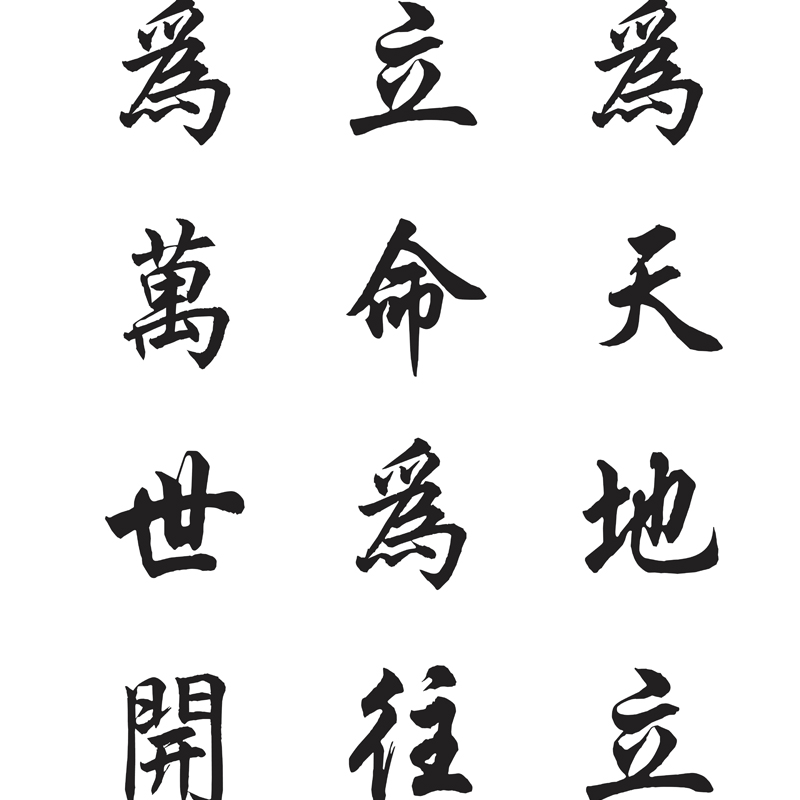 爲天地立
立命爲往
爲萬世開